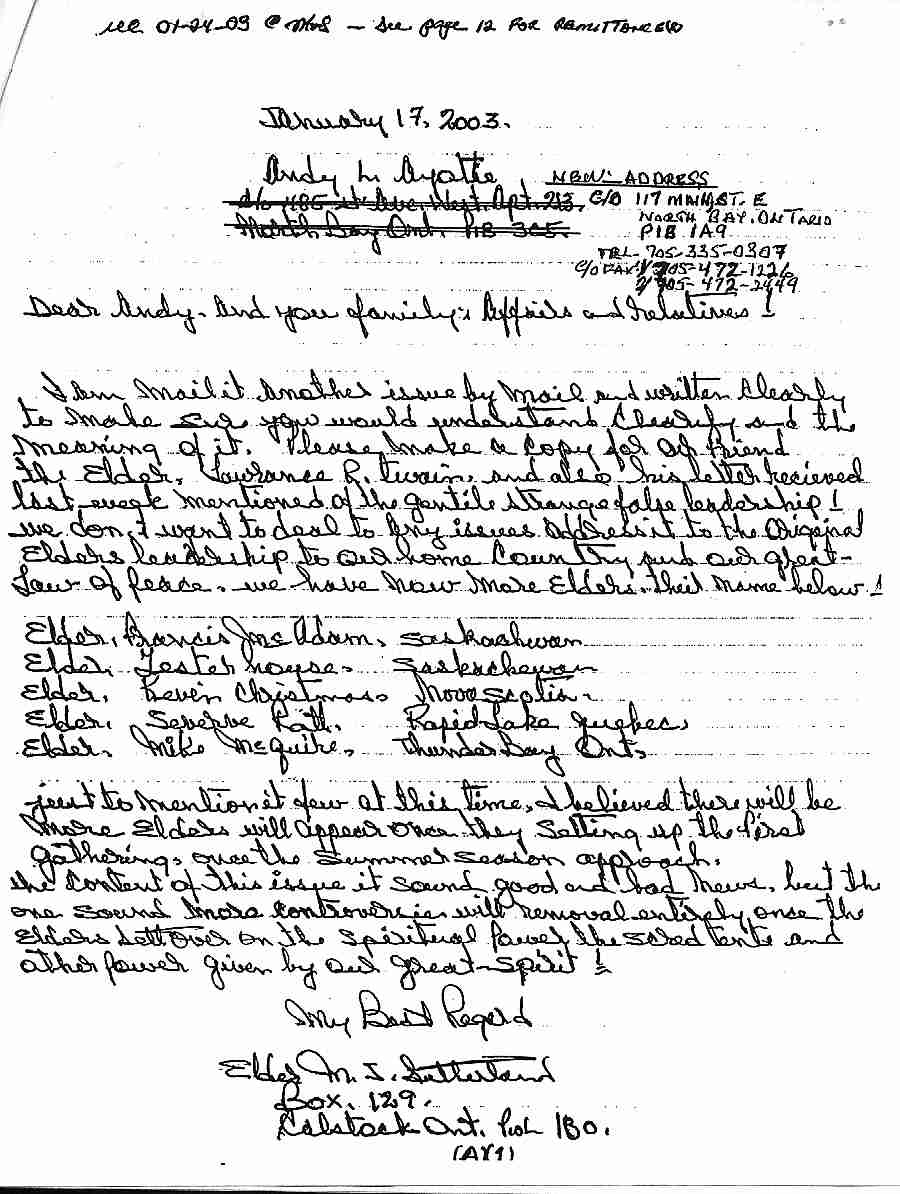 rec 01-24-03 @ – See page 12 FOR REMITTANCE(S)
January 17, 2003.
Andy L. Ayotte
c/o 485 1st Ave. West. Apt. 213.
North Bay Ont. P1B 3C5.
NEW: ADDRESS
C/O 117 MAIN ST. E
NORTH BAY, ONTARIO
P1B 1A9
TEL- 705-335-0307
C/O FAX: 1/ 705-472-1226
2/ 705-472-2449
Dear Andy. And you family; Affairs and relatives !
I am mail it another issue by mail and written clearly
to make you would understand clearly and the
meaning of it. Please, make a copy for our friend
the Elder, Lawrance R. Twain, and also his letter recieved
last week mentioned of the gentile strange false leadership !
we don,t want to deal to any issues address it to the Original
Elders leadership to our home Country and our great-
Law of peace. we have now more Elders. their name below !
Elder, Francis Mc Adam, Saskachwan
Elder, Lester house. Saskachewan
Elder, Kevin Christmas. Nova Scotia.
Elder, Severve Ratt, Rapid Lake Quebec,
Elder, Mike McGuire, Thunder Bay Ont,
just to mention it few at this time, I believed there will be
more Elders will appear once they setting up the first
gathering, once the summer season approach.
the content of this issue it sound good and bad news, but the
one sound more controvercies will removal entirely once the
Elders sett over on the spiritual power, the scred tents and
other power given by our great-spirit !
My Best Regard
Elder M. J. Sutterland
Box. 129.
Calstock Ont. PoL 1Bo.
(AY1)